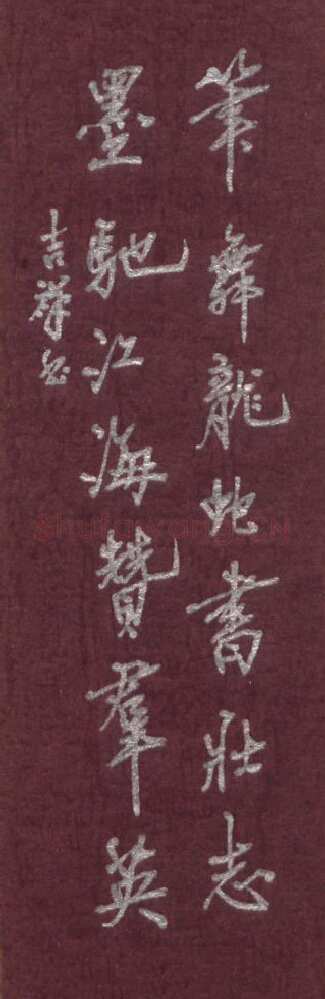 筆舞龍蛇書壯志
墨馳江海贊羣英
吉祥書